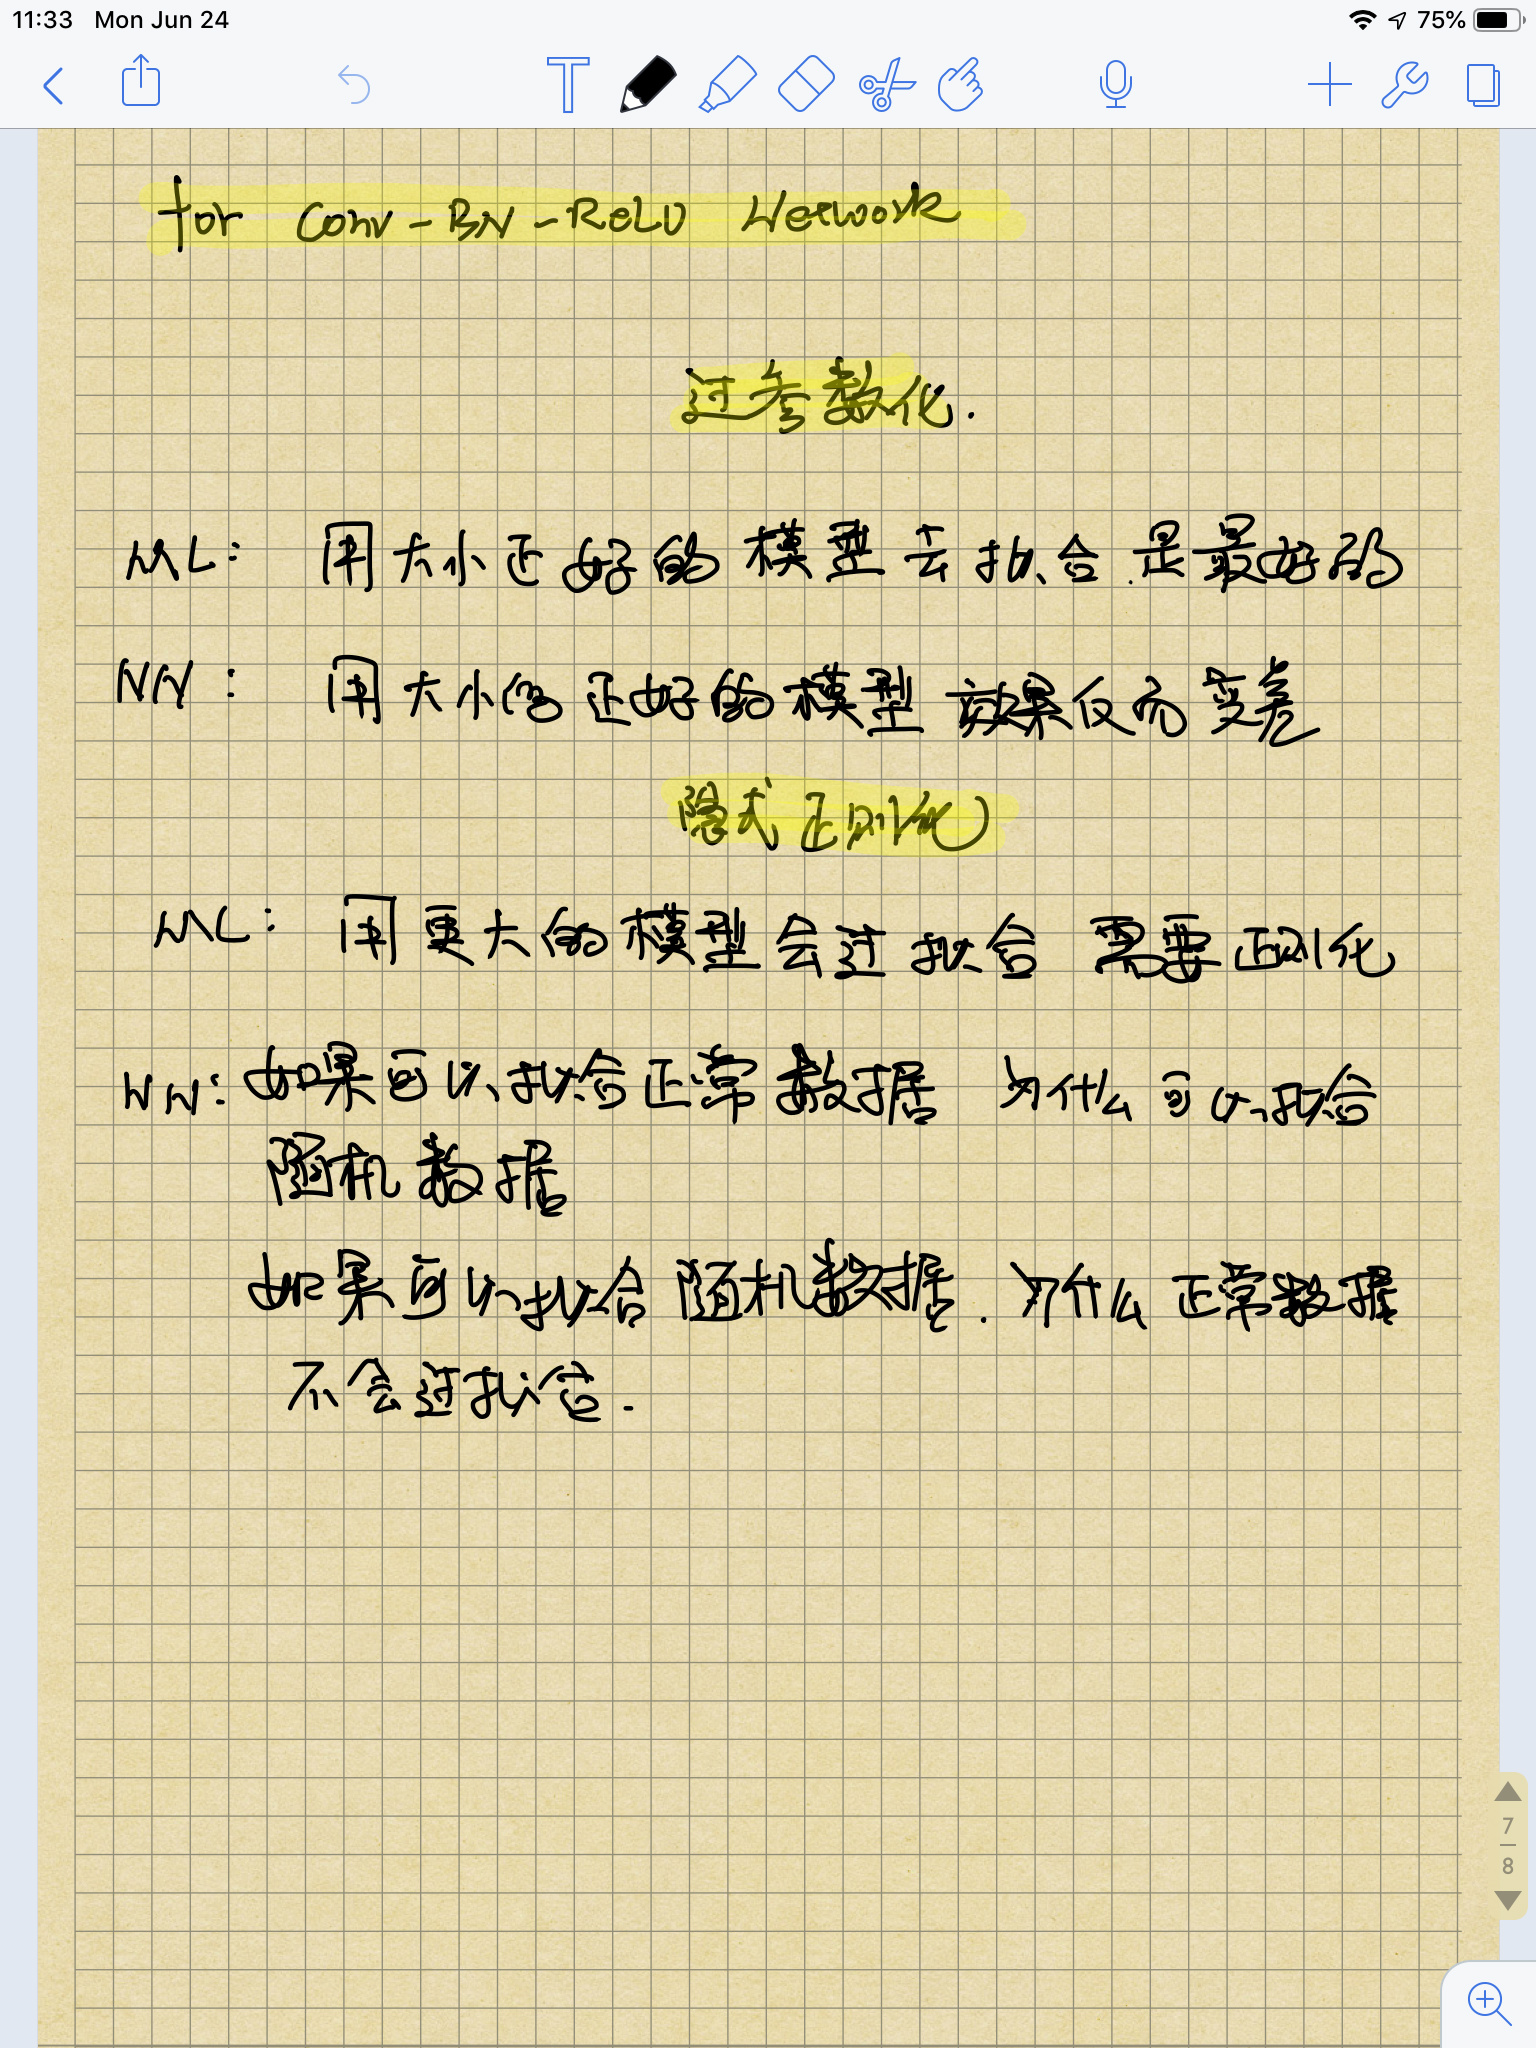 11:33 Mon Jun 24 75%
for Conv-BN-ReLU Network
过参数化.
ML: 用大小正好的模型去拟合.是最好的
NN: 用大小的正好的模型 效果仅而变差
隐式正则化
ML: 用更大的模型会过拟合 需要正则化
NN: 如果可以拟合正常数据 为什么可以拟合
随机数据
如果可以拟合随机数据. 为什么正常数据
不会过拟合.
7
8